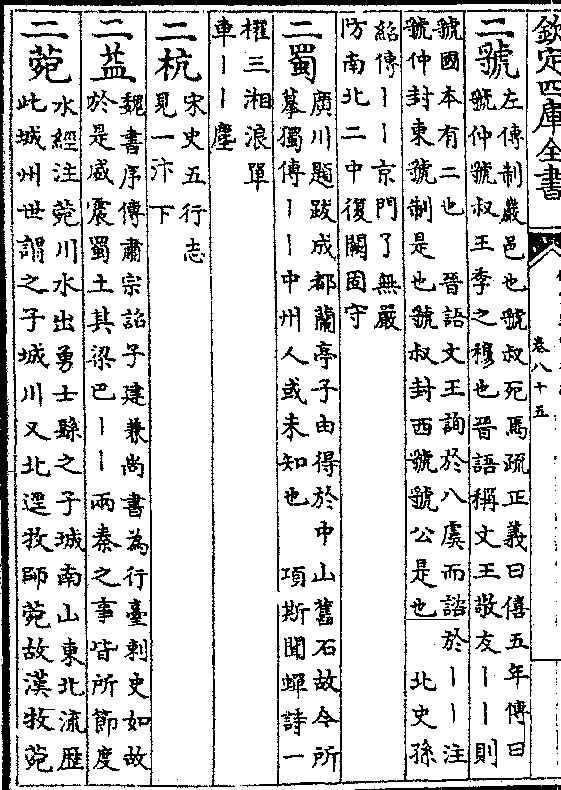 欽定四庫全書
卷八十五
二虢
左傳制巖邑也虢叔死焉疏正義曰僖五年傳曰
虢仲虢叔王季之穆也晉語稱文王敬友丨丨則
虢國本有二也　晉語文王詢於八虞而諮於丨丨注
虢仲封東虢制是也虢叔封西虢虢公是也　北史孫
紹傳丨丨京門了無嚴
防南北二中復闕固守
二蜀
廣川題跋成都蘭亭子由得於中山舊石故今所
摹獨傳丨丨中州人或未知也　項斯聞蟬詩一
櫂三湘浪單
車丨丨塵
二杭
宋史五行志
見一汴下
二益
魏書序傳肅宗詔子建兼尚書為行臺刺史如故
於是威震蜀土其梁巴丨丨兩秦之事皆所節度
二菀
水經注菀川水出勇士縣之子城南山東北流歷
此城州世謂之子城川又北逕牧師菀故漢牧菀